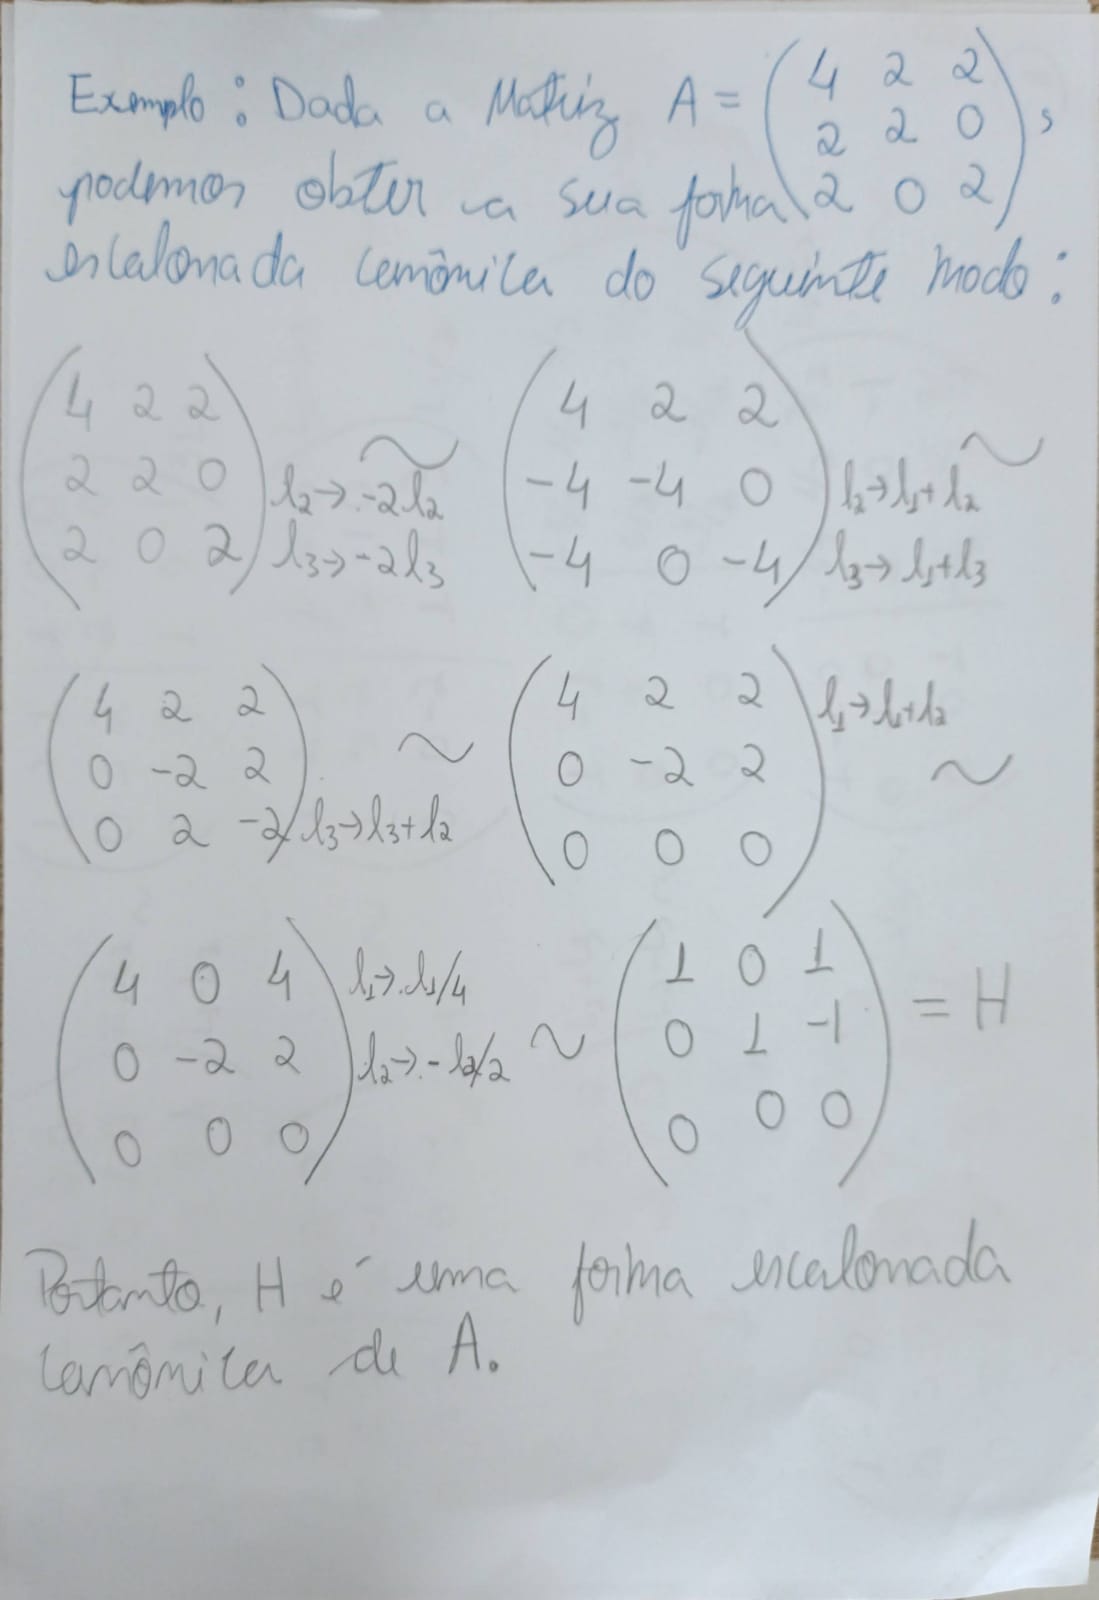 Exemplo: Dada a Matriz A = (4 2 2
2 2 0
2 0 2),
podemos obter a sua forma
escalonada canônica do seguinte modo:
(4 2 2
2 2 0
2 0 2) l2→-2l2
l3→-2l3 ~ (4 2 2
-4 -4 0
-4 0 -4) l2→l1+l2
l3→l1+l3 ~
(4 2 2
0 -2 2
0 2 -2) l3→l3+l2 ~ (4 2 2
0 -2 2
0 0 0) l1→l1+l2 ~
(4 0 4
0 -2 2
0 0 0) l1→l1/4
l2→-l2/2 ~ (1 0 1
0 1 -1
0 0 0) = H
Portanto, H é uma forma escalonada
canônica de A.